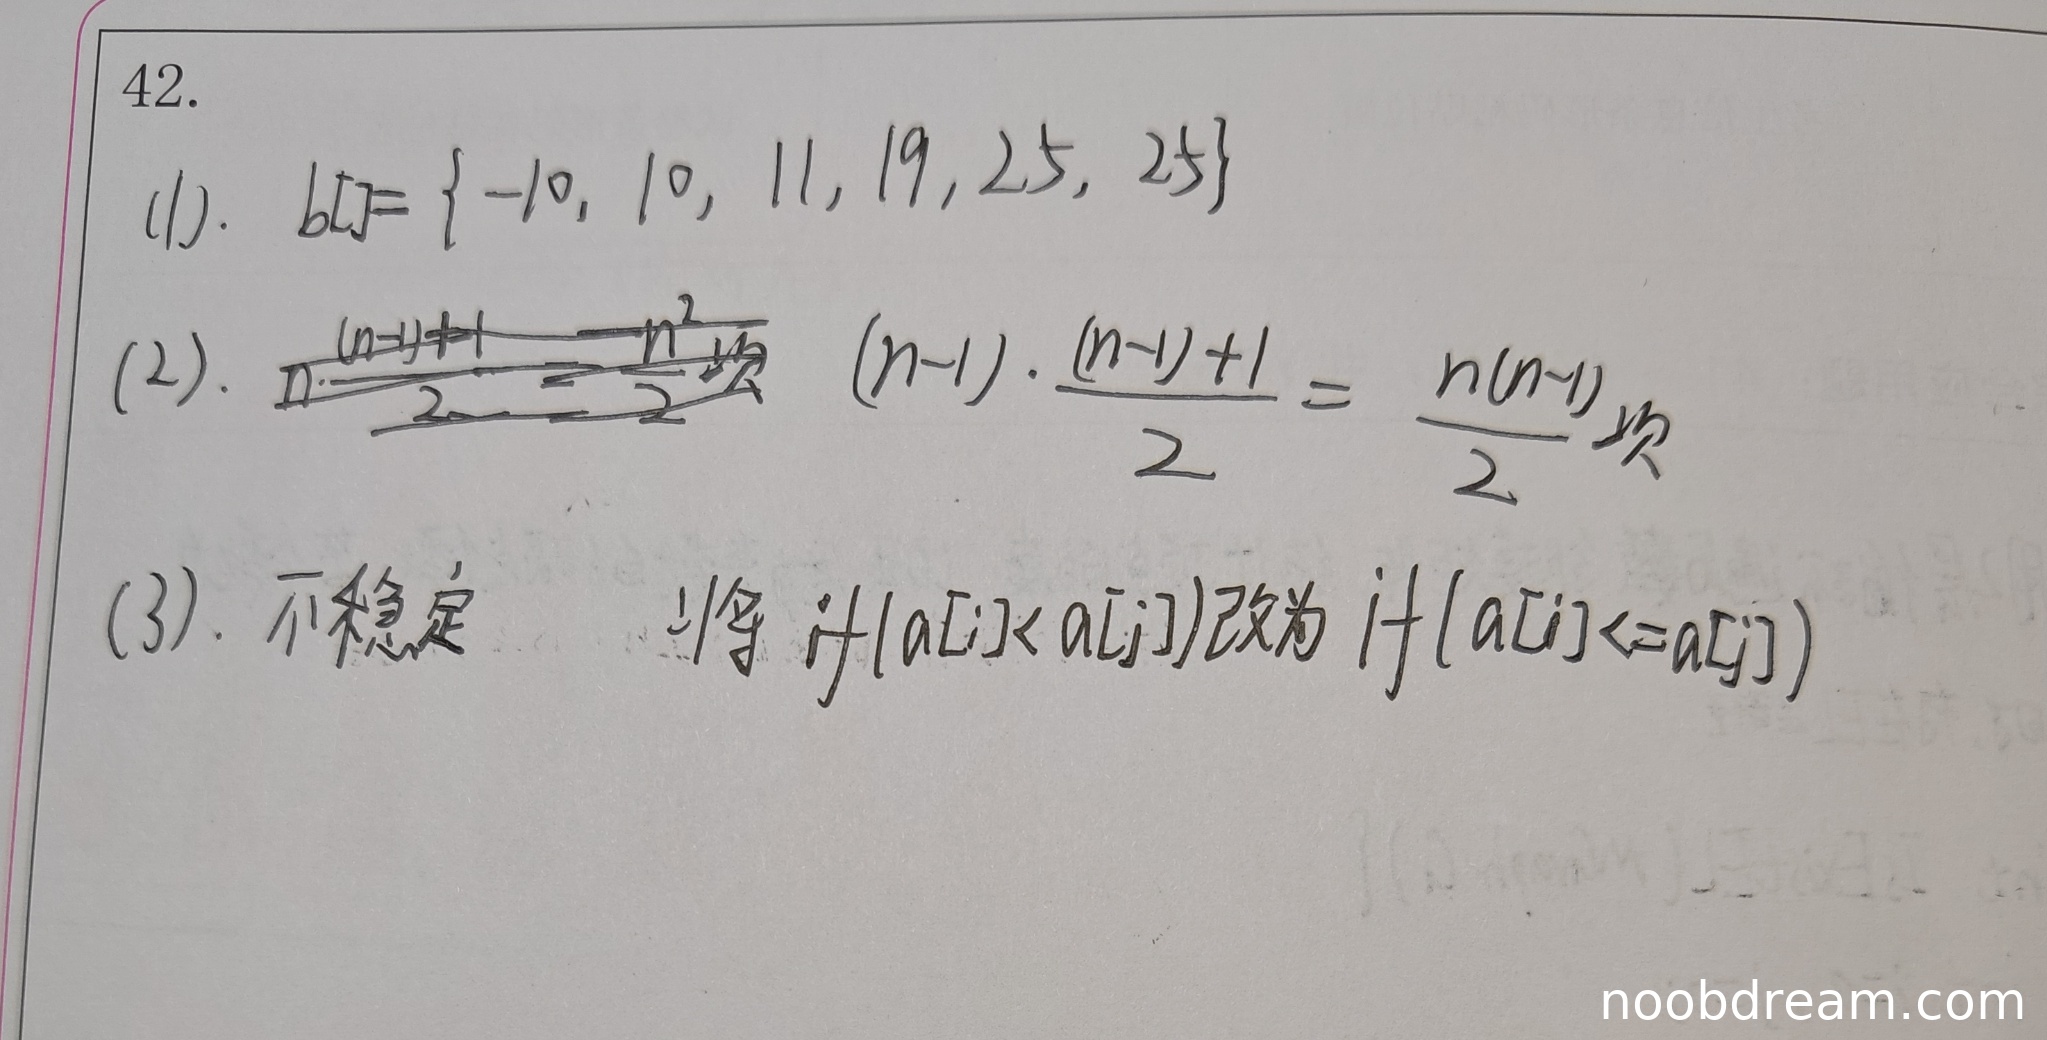 42.
(1). b[]={-10, 10, 11, 19, 25, 25}
(2). n·(n-1)+1/2 = n²/2项 (n-1)·(n-1)+1/2 = n(n-1)/2项
(3). 不稳定 将if(a[i]<a[j])改为if(a[i]<=a[j])
noobdream.com